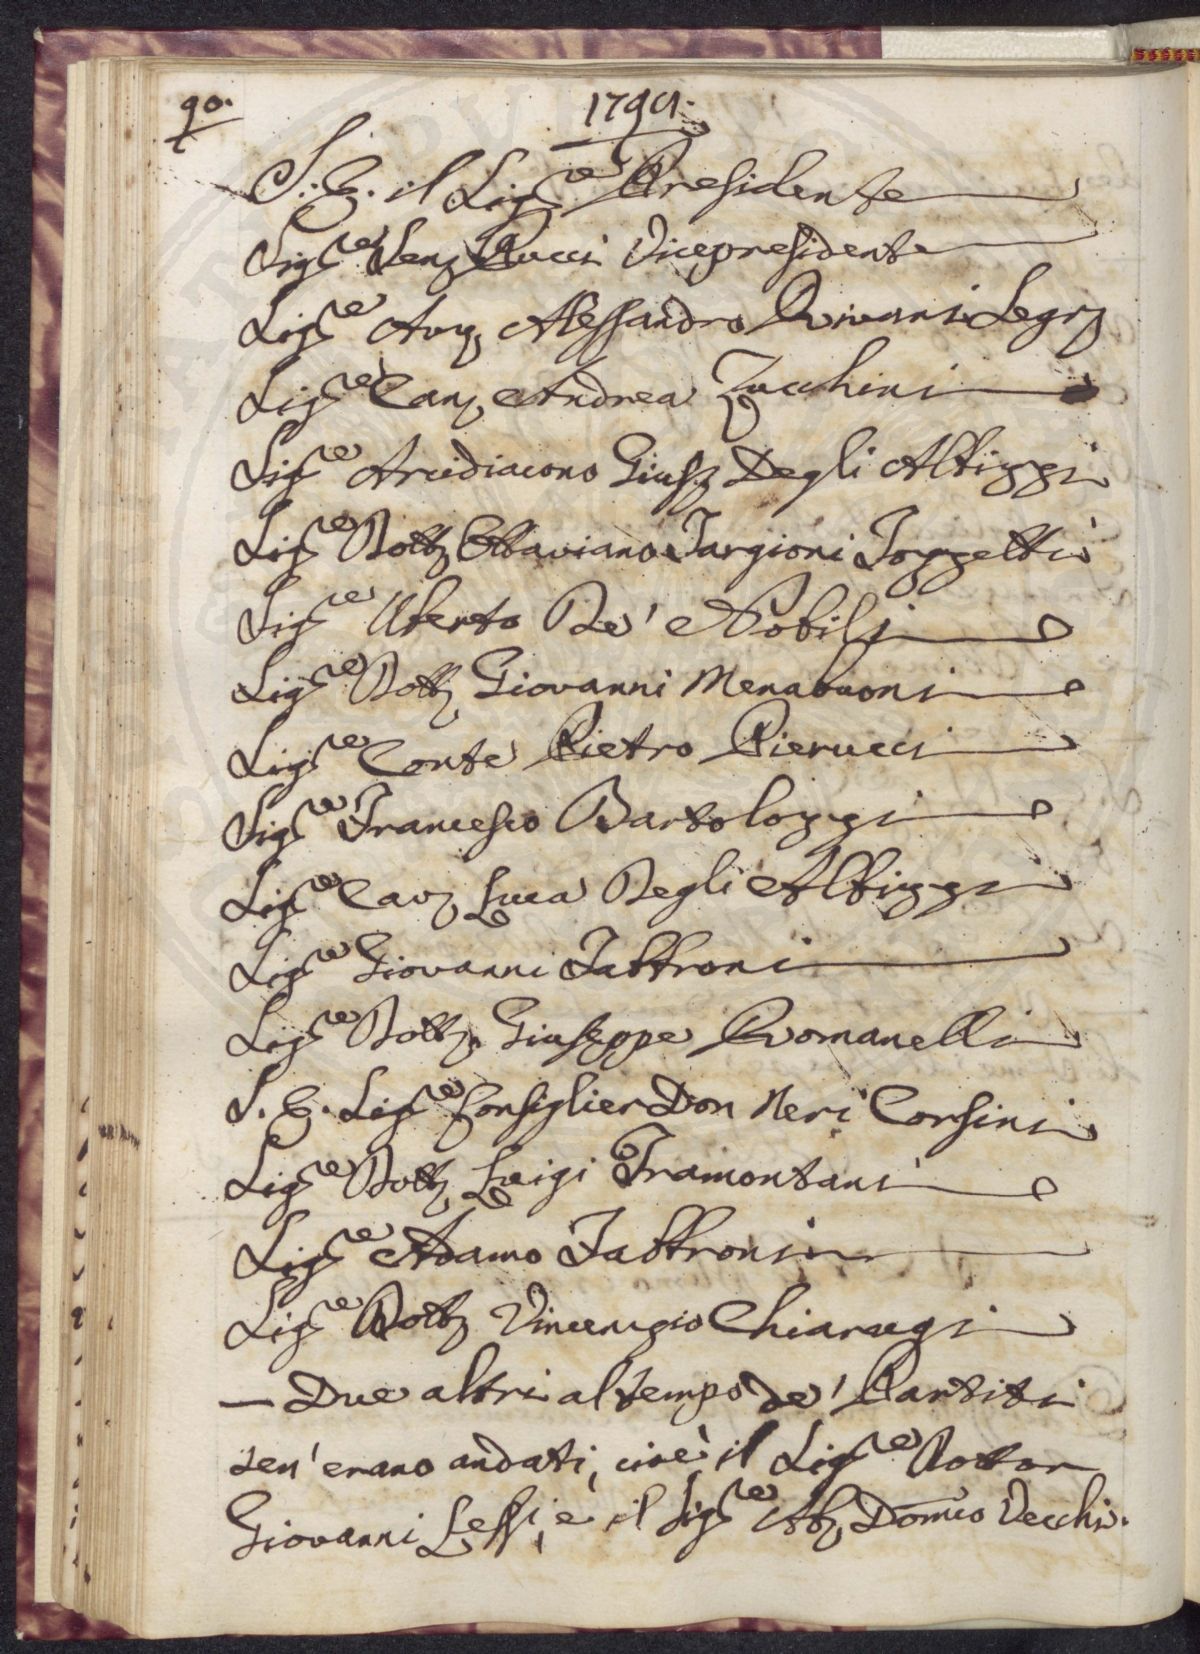 90.
1794.
S. E. il Sig.re Presidente
Sig.re Sen. Pucci Vicepresidente
Sig.re Avv. Alessandro Rivani Segr.
Sig.re Can. Andrea Zucchini
Sig.re Arcidiacono Gius. Degli Albizzi
Sig.re Dott. Ottaviano Targioni Tozzetti
Sig.re Uberto De' Nobili
Sig.re Dott. Giovanni Menabuoni
Sig.re Conte Pietro Pierucci
Sig.re Francesco Bartolozzi
Sig.re Cav. Luca Degli Albizzi
Sig.re Giovanni Fabbroni
Sig.re Dott. Giuseppe Romanelli
S. E. Sig.re Consiglier Don Neri Corsini
Sig.re Dott. Luigi Tramontani
Sig.re Adamo Fabbroni
Sig.re Dott. Vincenzio Chiarugi
— Due altri al tempo de' Partiti
sen' erano andati, cioè il Sig.re Dottor
Giovanni Lessi, e il Sig.re Ab. Dom.co Vecchi.